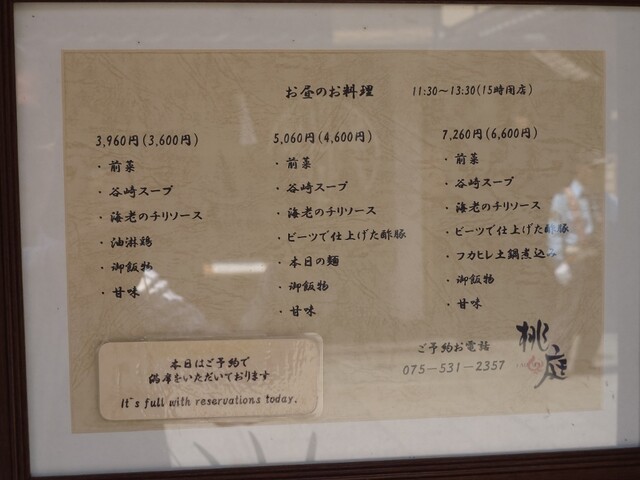 お昼のお料理 11:30～13:30(15時閉店)
3,960円(3,600円)
・前菜
・谷崎スープ
・海老のチリソース
・油淋鶏
・御飯物
・甘味
5,060円(4,600円)
・前菜
・谷崎スープ
・海老のチリソース
・ビーツで仕上げた酢豚
・本日の麺
・御飯物
・甘味
7,260円(6,600円)
・前菜
・谷崎スープ
・海老のチリソース
・ビーツで仕上げた酢豚
・フカヒレ土鍋煮込み
・御飯物
・甘味
本日はご予約で
満席をいただいております
It`s full with reservations today.
ご予約お電話
075-531-2357
桃庭